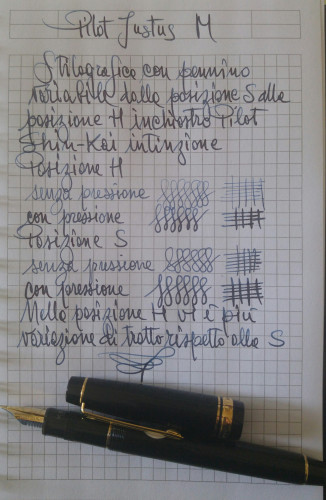 Pilot Justus M
Stilografica con pennino
variabile dalla posizione S alla
posizione H inchiostro Pilot
Shin-Kai intinzione
Posizione H
senza pressione
con pressione
Posizione S
senza pressione
con pressione
Nella posizione H vi è più
variazione di tratto rispetto alla S